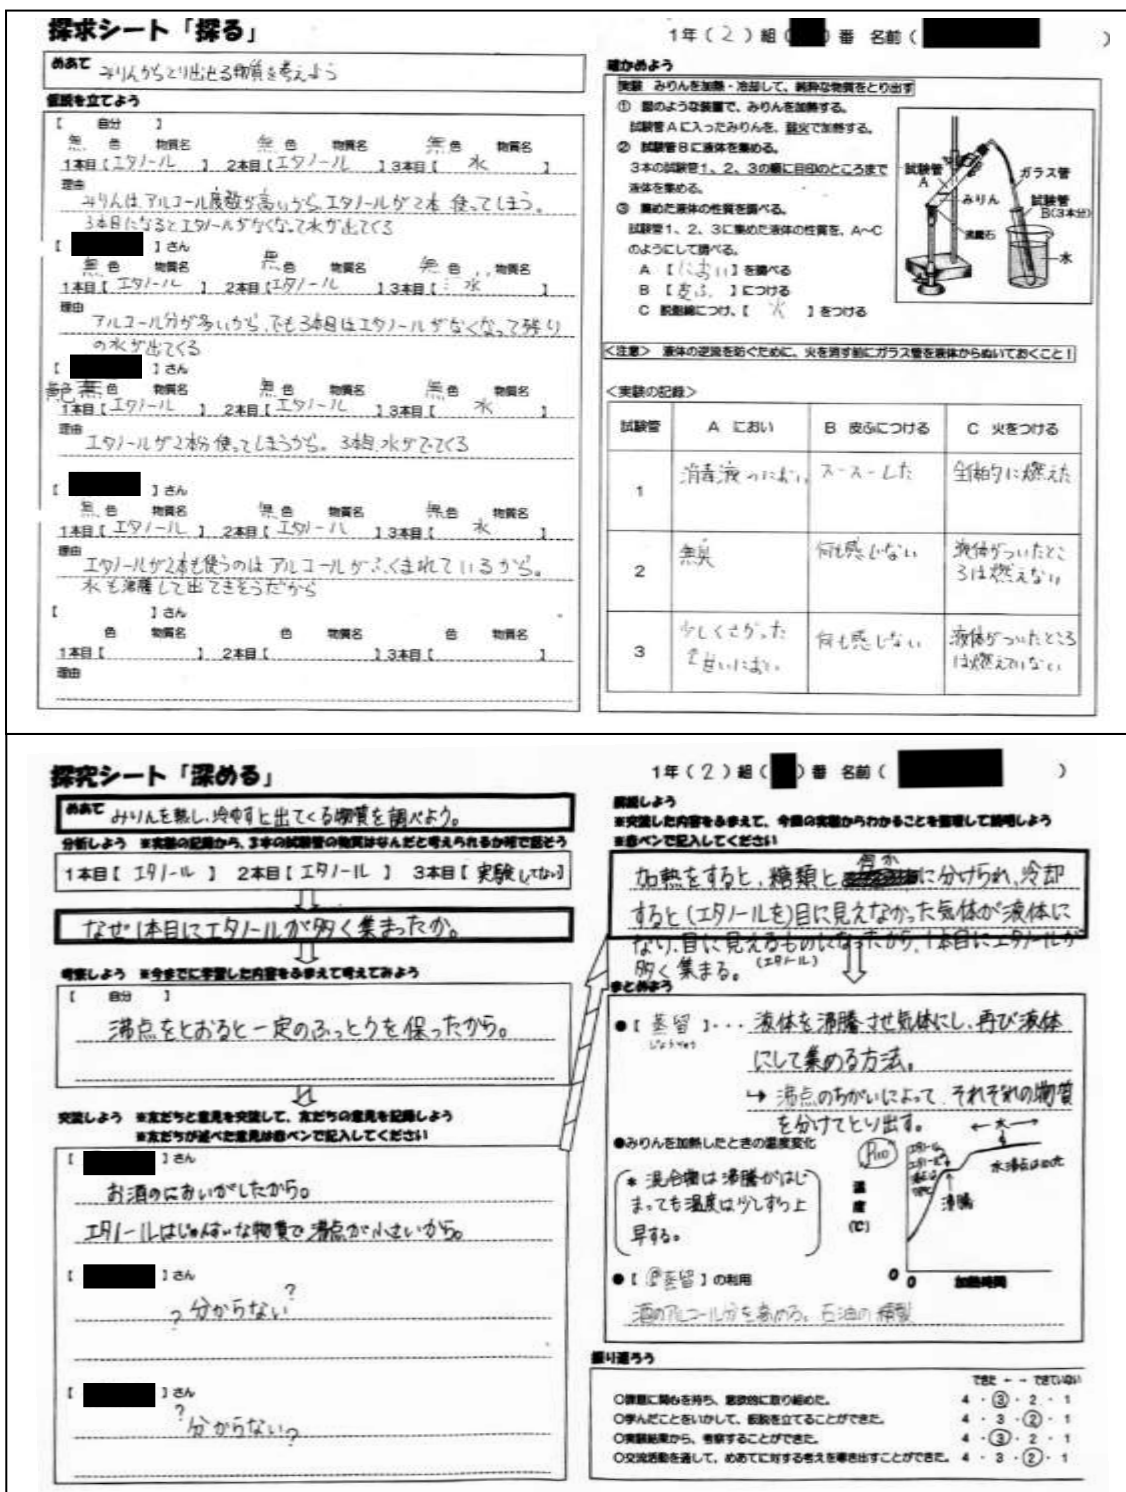 探求シート「探る」
1年（2）組（　）番 名前（　）
めあて みりんからとり出せる物質を考えよう
仮説を立てよう
【 自分 】
無色 物質名 無色 物質名 無色 物質名
1本目【エタノール】 2本目【エタノール】 3本目【水】
理由
みりんは、アルコール度数が高いから、エタノールが2本使ってしまう。
3本目になるとエタノールがなくなって水が出てくる
【　】さん
無色 物質名 無色 物質名 無色 物質名
1本目【エタノール】 2本目【エタノール】 3本目【水】
理由
アルコール分が多いから、でも3本目はエタノールがなくなって残り
の水が出てくる
【　】さん
無色 物質名 無色 物質名 無色 物質名
1本目【エタノール】 2本目【エタノール】 3本目【水】
理由
エタノールが2本分使ってしまうから。3本目、水がでてくる
【　】さん
無色 物質名 無色 物質名 無色 物質名
1本目【エタノール】 2本目【エタノール】 3本目【水】
理由
エタノールが2本も使うのはアルコールがふくまれているから。
水も沸騰して出てきそうだから
【　】さん
色 物質名 色 物質名 色 物質名
1本目【　】 2本目【　】 3本目【　】
理由
確かめよう
実験 みりんを加熱・冷却して、純粋な物質をとり出す
① 図のような装置で、みりんを加熱する。
試験管Aに入ったみりんを、弱火で加熱する。
② 試験管Bに液体を集める。
3本の試験管1、2、3の順に目印のところまで
液体を集める。
③ 集めた液体の性質を調べる。
試験管1、2、3に集めた液体の性質を、A〜C
のようにして調べる。
A 【におい】を調べる
B 【皮ふ】につける
C 脱脂綿につけ、【火】をつける
試験管
A
みりん
沸騰石
ガラス管
試験管
B(3本分)
水
＜注意＞ 液体の逆流を防ぐために、火を消す前にガラス管を液体からぬいておくこと！
＜実験の記録＞
試験管 A におい B 皮ふにつける C 火をつける
1 消毒液のにおい スースーした 全体的に燃えた
2 無臭 何も感じない 液体がついたところは燃えない
3 少しくさかった 甘いにおい 何も感じない 液体がついたところは燃えていない
探究シート「深める」
1年（2）組（　）番 名前（　）
めあて みりんを熱し、冷やすと出てくる物質を調べよう。
分析しよう ※実験の記録から、3本の試験管の物質はなんだと考えられるか班で話そう
1本目【エタノール】 2本目【エタノール】 3本目【実験してない】
なぜ1本目にエタノールが多く集まったか。
考察しよう ※今までに学習した内容をふまえて考えてみよう
【 自分 】
沸点をとおると一定のふっとうを保ったから。
交流しよう ※友だちと意見を交流して、友だちの意見を記録しよう
※友だちが述べた意見は赤ペンで記入してください
【　】さん
お酒のにおいがしたから。
エタノールはじゅんすいな物質で沸点が小さいから。
【　】さん
？分からない？
【　】さん
？分からない？
解説しよう
※交流した内容をふまえて、今回の実験からわかることを整理して説明しよう
※赤ペンで記入してください
加熱をすると、糖類と何かに分けられ、冷却
すると(エタノールを)目に見えなかった気体が液体に
なり、目に見えるものになったから、1本目にエタノールが
多く集まる。(エタノール)
まとめよう
●【蒸留】・・・液体を沸騰させ気体にし、再び液体
じょうりゅう
にして集める方法。
→ 沸点のちがいによって、それぞれの物質
を分けてとり出す。
●みりんを加熱したときの温度変化
＊混合物は沸騰がはじ
まっても温度は少しずつ上
昇する。
P110
温度(℃)
沸騰
←水→
0
0 加熱時間
●【蒸留】の利用
酒のアルコール分を高める。石油の精製
振り返ろう
できた ←→ できていない
〇課題に関心を持ち、意欲的に取り組めた。 4・③・2・1
〇学んだことをいかして、仮説を立てることができた。 4・3・②・1
〇実験結果から、考察することができた。 4・③・2・1
〇交流活動を通して、めあてに対する考えを導き出すことができた。 4・3・②・1